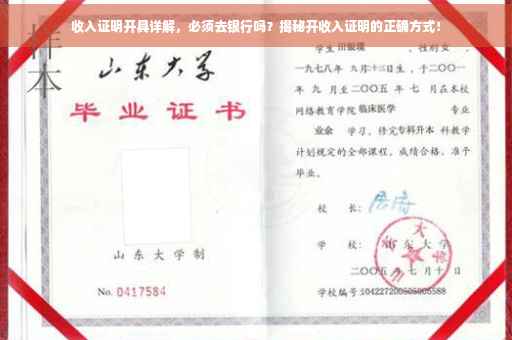 收入证明开具详解，必须去银行吗？揭秘开收入证明的正确方式！
样本
山东大学
毕业证书
山东大学制
No. 0417584
学生
性别女，
一九七八年 九月十三日生，于二〇〇一
年 九 月至二〇〇五 年 七 月在本校
网络教育学院临床医学 专业
业余 学习，修完专科升本科教学
计划规定的全部课程，成绩合格，准予
毕业。
校 长：
学 校：山东大学
二〇〇五年七月十日
学校编号：104227200505005588